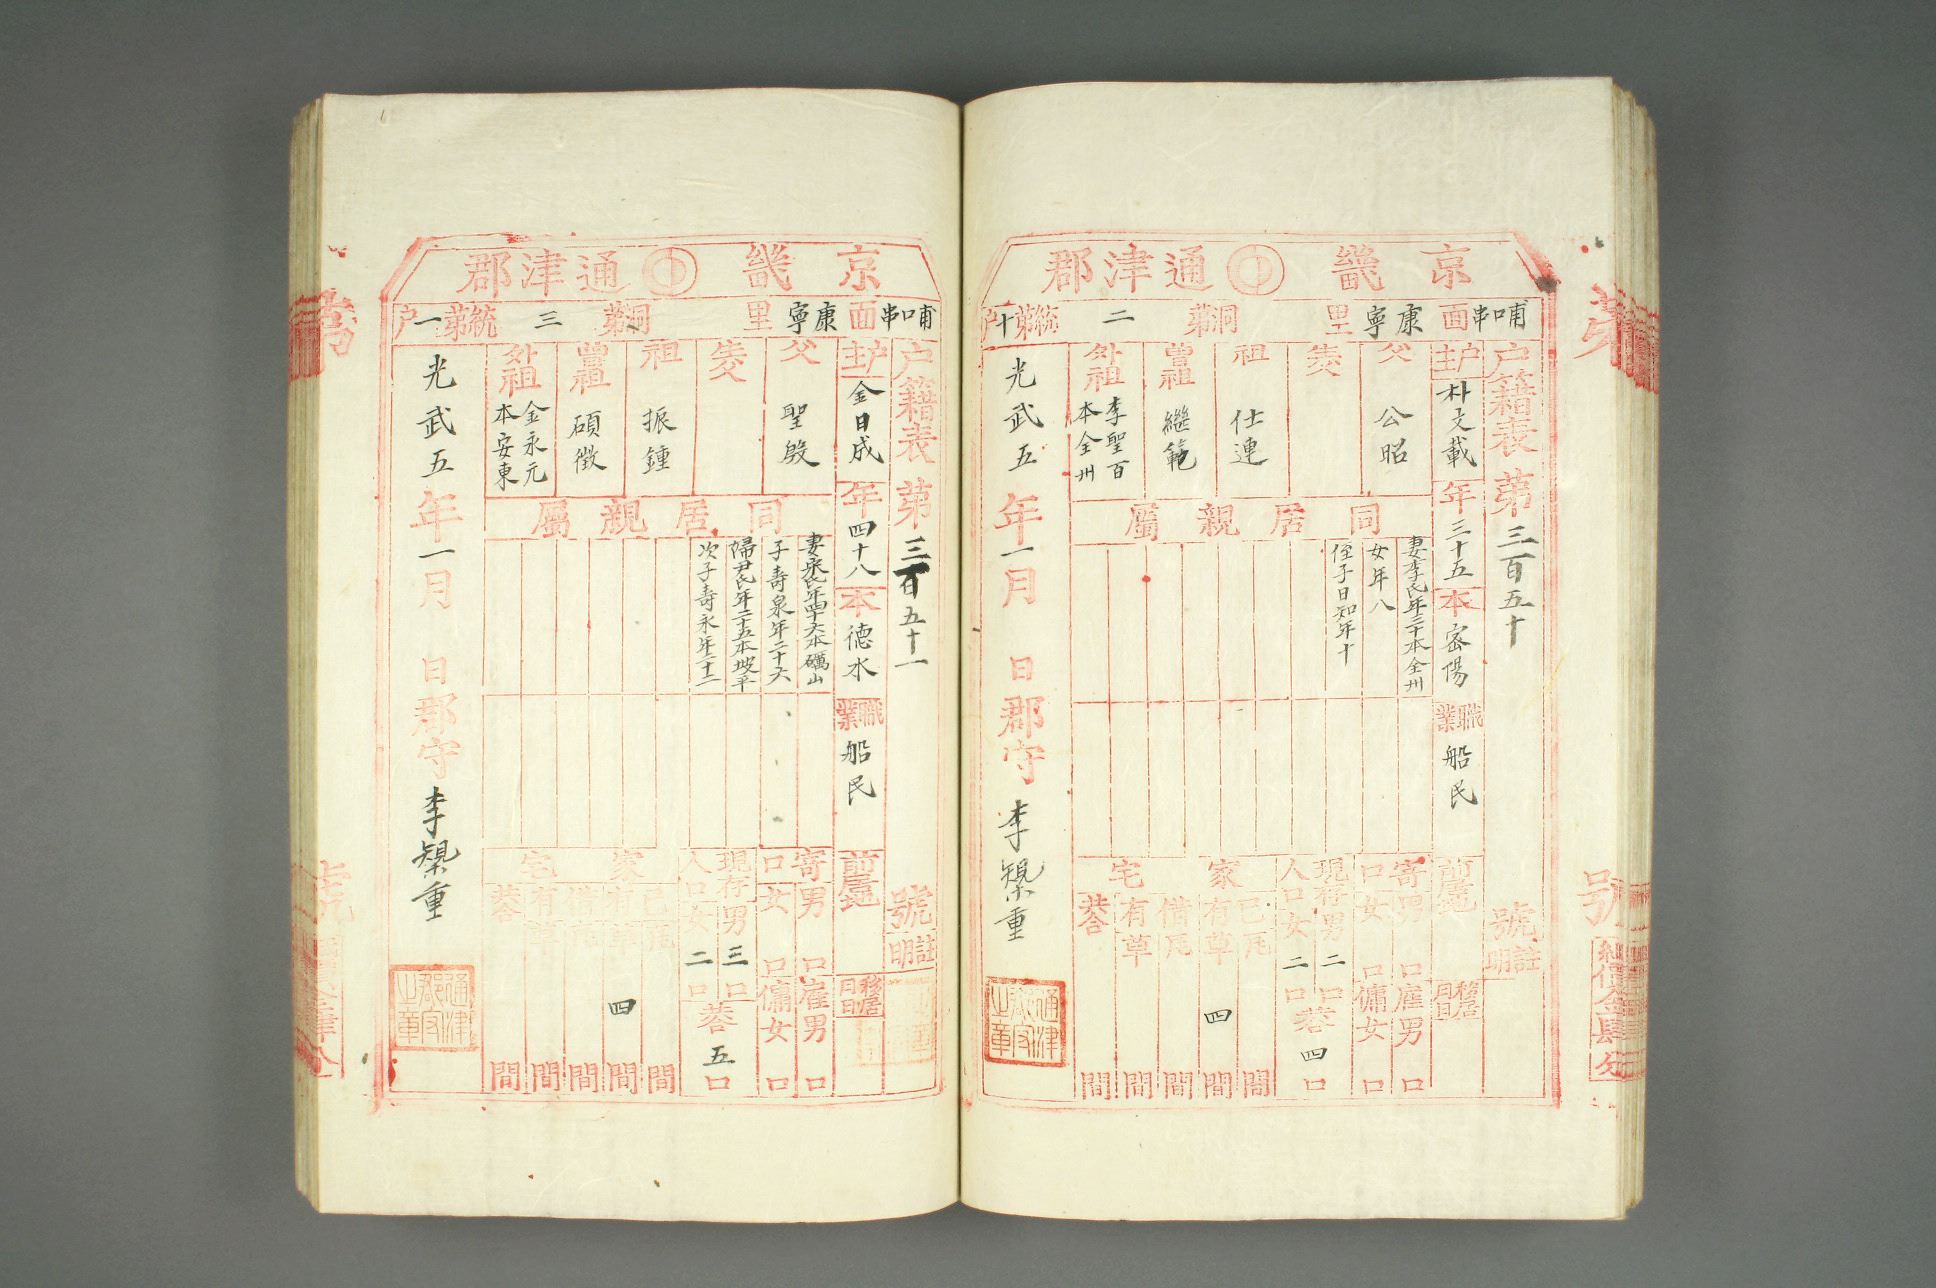 京畿 通津郡
哺口串面 康寧里 第二洞 第 統第十户
户籍表 第三百五十號
户主 朴文載 年三十五 本密陽 職業 船民 前居地 移居月日
父 公昭
生父
祖 仕連
曾祖 繼範
外祖 李聖百 本全州
同居親屬
妻李氏年三十本全州
女年八
侄子日知年十
寄口 男 口 女 口
雇男 口 傭女 口
現存人口 男二口 女二口 共合四口
家宅
己 瓦 間 有草四間
借 瓦 間 有草 間
共合 間
光武五年一月 日 郡守 李 重
通津郡守之章
京畿 通津郡
哺口串面 康寧里 第三洞 統第一户
户籍表 第三百五十一號
户主 金日成 年四十八 本德水 職業 船民 前居地 移居月日
父 聖殷
生父
祖 振鍾
曾祖 碩徵
外祖 金永元 本安東
同居親屬
妻 氏年四十六本礪山
子壽泉年二十六
婦尹氏年二十五本坡平
次子壽永年二十二
寄口 男 口 女 口
雇男 口 傭女 口
現存人口 男三口 女二口 共合五口
家宅
己 瓦 間 有草四間
借 瓦 間 有草 間
共合 間
光武五年一月 日 郡守 李 重
通津郡守之章